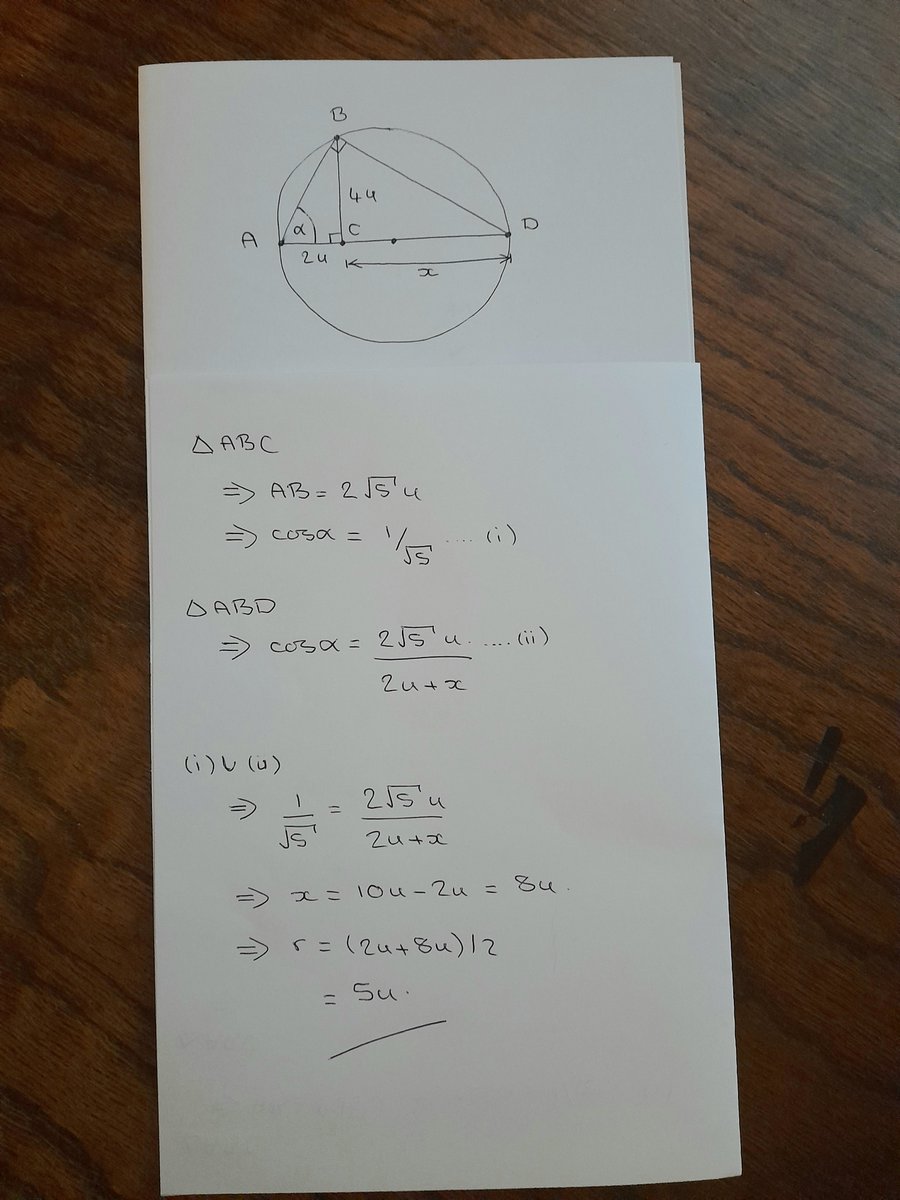 B
4u
A α C D
2u
x
△ABC
⇒ AB = 2√5 u
⇒ cosα = 1/√5 .... (i)
△ABD
⇒ cosα = 2√5 u / 2u+x ....(ii)
(i) & (ii)
⇒ 1/√5 = 2√5 u / 2u+x
⇒ x = 10u - 2u = 8u.
⇒ r = (2u+8u)/2
= 5u.